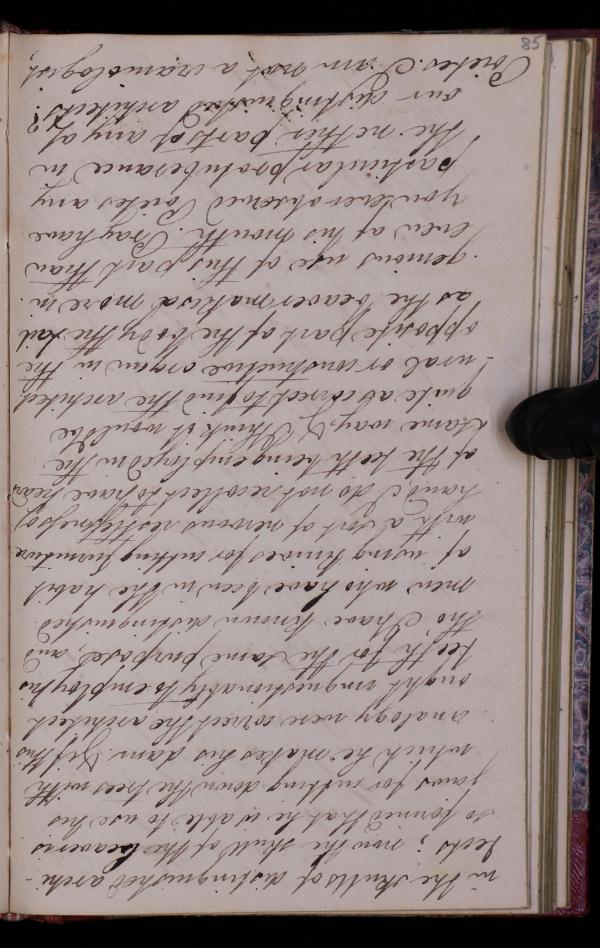 in the skulls of distinguished archi-
tects; now the skull of the beaver is
so formed that he is able to use his
jaws for cutting down the trees with
which he makes his dam. If this
analogy were correct the architect
ought unquestionably to employ his
teeth for the same purpose, and
tho I have known distinguished
men who have been in the habit
of using knives for cutting furniture
with a sort of nervous restlessness of
hand, I do not recollect to have heard
of the teeth being employed in the
same way, & I think it would be
quite as correct to find the architect
-ural or constructive organ in the
opposite part of the body the tail
as the beaver makes a more in-
genious use of this part than
even of his mouth. Pray have
you ever observed Poietes any
particular protuberance in
the nether parts of any of
our distinguished architects?
Poietes. I am not a craniologist,
85